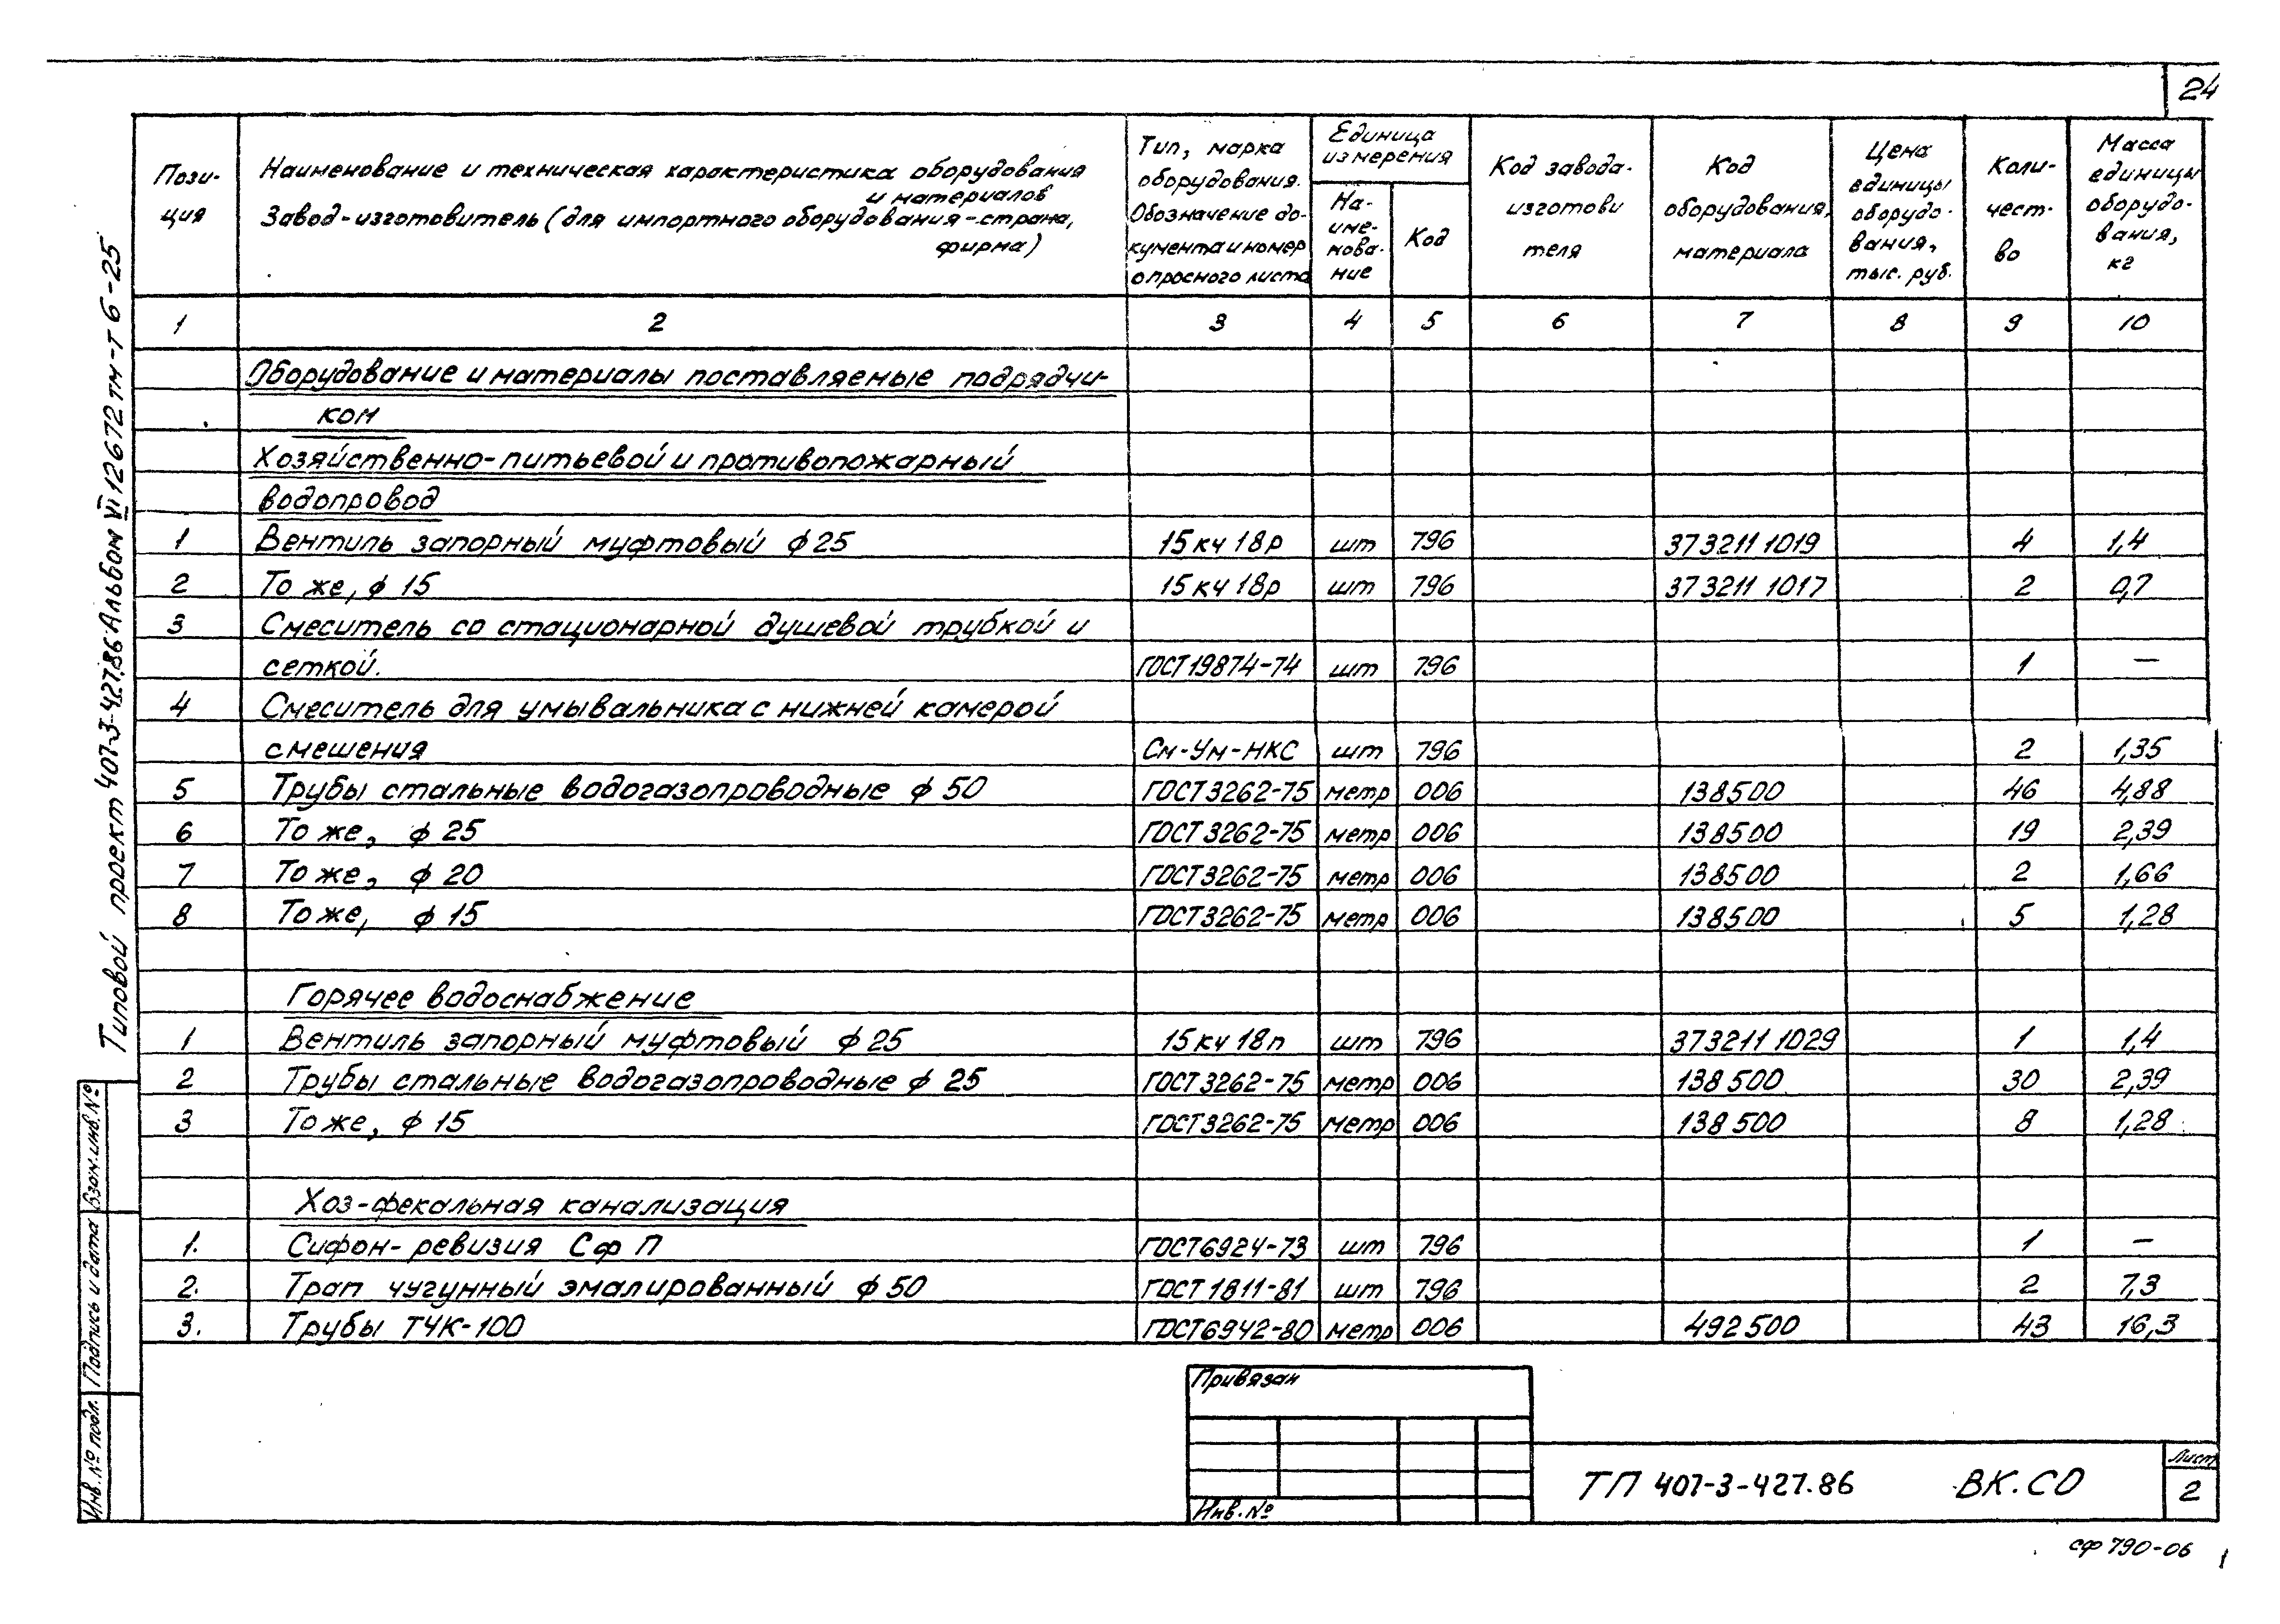 24
Пози-
ция
Наименование и техническая характеристика оборудования
и материалов
Завод-изготовитель (для импортного оборудования-страна,
фирма)
Тип, марка
оборудования.
Обозначение до-
кумента и номер
опросного листа
Единица
измерения
На-
име-
нова-
ние
Код
Код завода-
изготови
теля
Код
оборудования,
материала
Цена
единицы
оборудо-
вания,
тыс. руб.
Коли-
чест-
во
Масса
единицы
оборудо-
вания,
кг
1 2 3 4 5 6 7 8 9 10
Оборудование и материалы поставляемые подрядчи-
ком
Хозяйственно-питьевой и противопожарный
водопровод
1 Вентиль запорный муфтовый ϕ25 15кч18р шт 796 373211 1019 4 1,4
2 То же, ϕ 15 15кч18р шт 796 373211 1017 2 0,7
3 Смеситель со стационарной душевой трубкой и
сеткой. ГОСТ19874-74 шт 796 1 —
4 Смеситель для умывальника с нижней камерой
смешения См-Ум-НКС шт 796 2 1,35
5 Трубы стальные водогазопроводные ϕ 50 ГОСТ3262-75 метр 006 138500 46 4,88
6 То же, ϕ 25 ГОСТ3262-75 метр 006 138500 19 2,39
7 То же, ϕ 20 ГОСТ3262-75 метр 006 138500 2 1,66
8 То же, ϕ 15 ГОСТ3262-75 метр 006 138500 5 1,28
Горячее водоснабжение
1 Вентиль запорный муфтовый ϕ25 15кч18п шт 796 373211 1029 1 1,4
2 Трубы стальные водогазопроводные ϕ 25 ГОСТ3262-75 метр 006 138500 30 2,39
3 То же, ϕ 15 ГОСТ3262-75 метр 006 138500 8 1,28
Хоз-фекальная канализация
1. Сифон-ревизия СфП ГОСТ6924-73 шт 796 1 —
2. Трап чугунный эмалированный ϕ50 ГОСТ1811-81 шт 796 2 7,3
3. Трубы ТЧК-100 ГОСТ6942-80 метр 006 492500 43 16,3
Типовой проект 407-3-427.86 Альбом VI 12672тм-т6-25
Взам.инв.№
Подпись и дата
Инв.№ подл.
Привязан
Инв.№
ТП 407-3-427.86 ВК.СО
Лист
2
сф 790-06